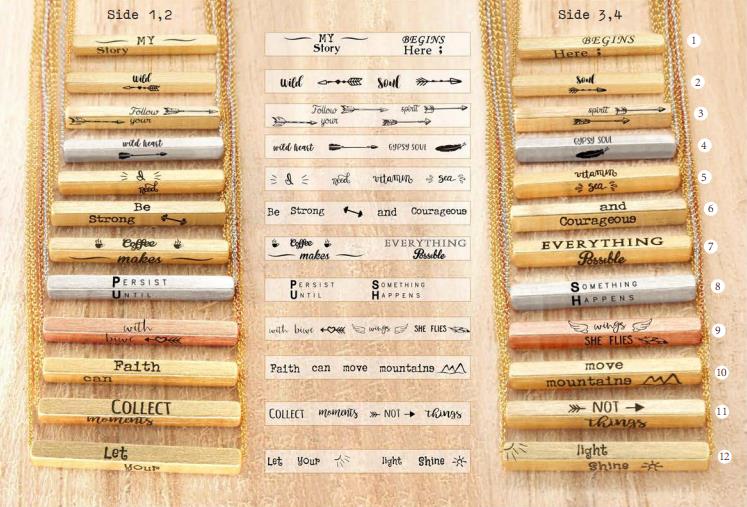 Side 1,2
Side 3,4
MY
Story
MY
Story
BEGINS
Here ;
BEGINS
Here ;
1
wild
wild
soul
soul
2
Follow
your
Follow
your
spirit
spirit
3
wild heart
wild heart
GYPSY SOUL
GYPSY SOUL
4
I
need
I
need
vitamin
sea
vitamin
sea
5
Be
Strong
Be Strong and Courageous
and
Courageous
6
Coffee
makes
Coffee
makes
EVERYTHING
Possible
EVERYTHING
Possible
7
PERSIST
UNTIL
PERSIST
UNTIL
SOMETHING
HAPPENS
SOMETHING
HAPPENS
8
with
brave
with brave wings SHE FLIES
wings
SHE FLIES
9
Faith
can
Faith can move mountains
move
mountains
10
COLLECT
moments
COLLECT moments NOT things
NOT
things
11
Let
your
Let your light Shine
light
Shine
12